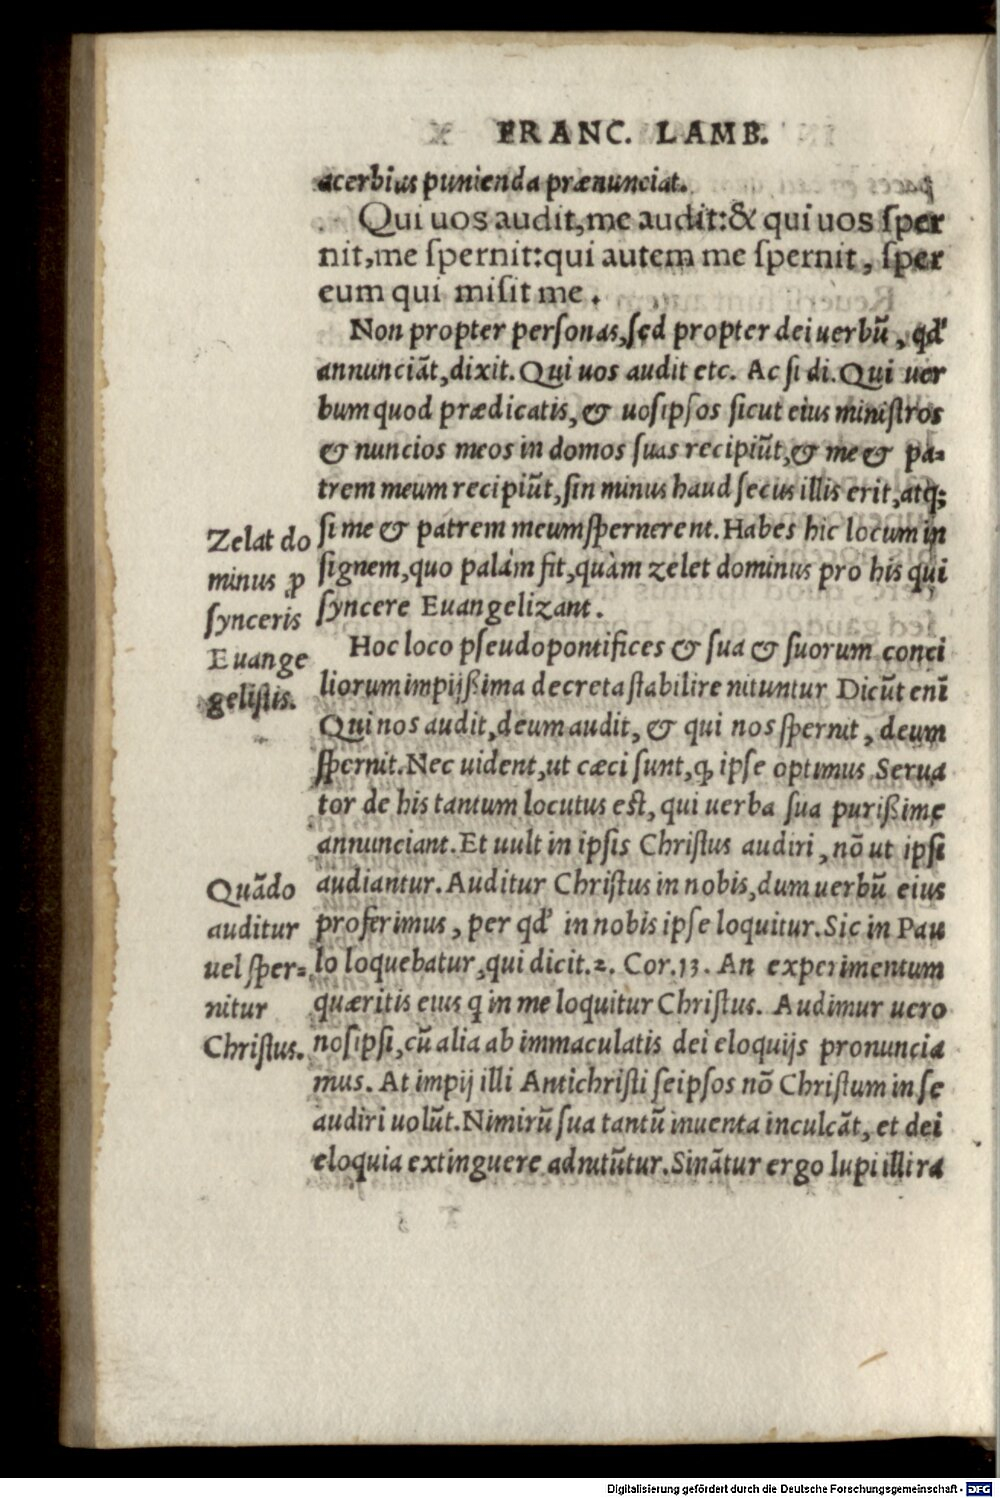 FRANC. LAMB.
acerbius punienda prænunciat.
Qui uos audit, me audit: & qui uos sper
nit, me spernit: qui autem me spernit, sper
eum qui misit me.
Non propter personas, sed propter dei uerbũ, qđ
annunciãt, dixit. Qui uos audit etc. Ac si di. Qui uer
bum quod prædicatis, & uosipsos sicut eius ministros
& nuncios meos in domos suas recipiũt, & me & pa-
trem meum recipiũt, sin minus haud secus illis erit, atq;
si me & patrem meum spernerent. Habes hic locum in
signem, quo palàm fit, quàm zelet dominus pro his qui
syncere Euangelizant.
Zelat do
minus ꝓ
synceris
Euange
gelistis.
Hoc loco pseudopontifices & sua & suorum conci
liorum impijßima decreta stabilire nituntur Dicũt enĩ
Qui nos audit, deum audit, & qui nos spernit, deum
spernit. Nec uident, ut cæci sunt, ꝙ ipse optimus Serua
tor de his tantum locutus est, qui uerba sua purißime
annunciant. Et uult in ipsis Christus audiri, nõ ut ipsi
audiantur. Auditur Christus in nobis, dum uerbũ eius
proferimus, per qđ in nobis ipse loquitur. Sic in Pau
lo loquebatur, qui dicit. 2. Cor. 13. An experimentum
quæritis eius q in me loquitur Christus. Audimur uero
nosipsi, cũ alia ab immaculatis dei eloquijs pronuncia
mus. At impij illi Antichristi seipsos nõ Christum in se
audiri uolũt. Nimirũ sua tantũ inuenta inculcãt, et dei
eloquia extinguere adnitũtur. Sinãtur ergo lupi illi ra
Quãdo
auditur
uel sper-
nitur
Christus.
Digitalisierung gefördert durch die Deutsche Forschungsgemeinschaft - DFG